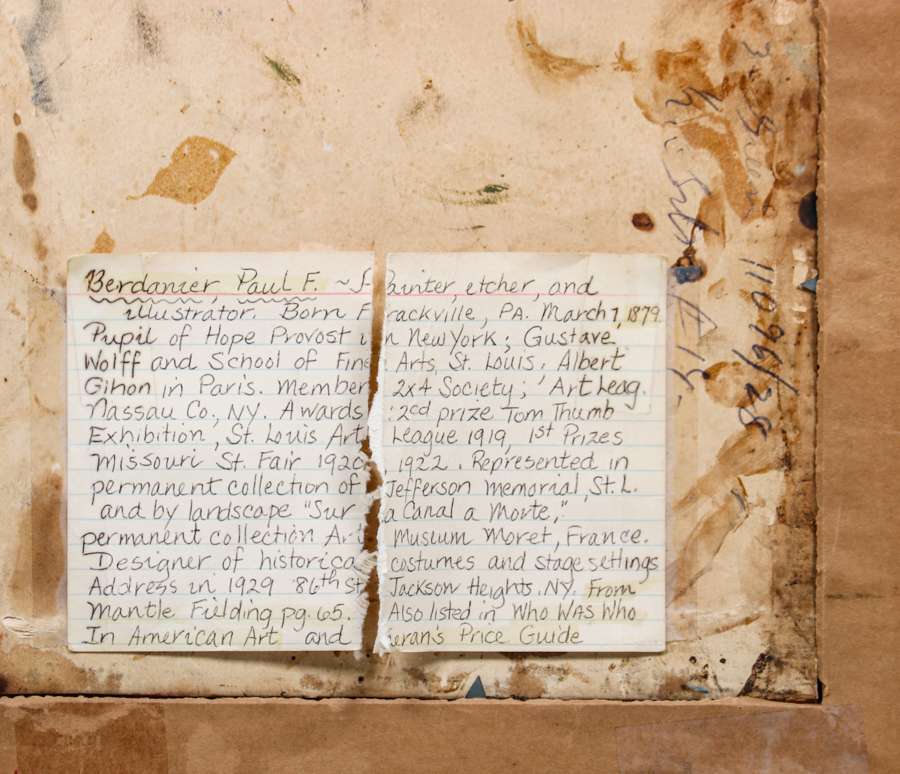 Berdanier, Paul F. ~ ainter, etcher, and
illustrator. Born F rackville, PA. March 7, 1879.
Pupil of Hope Provost in New York; Gustave
Wolff and School of Fine Arts, St. Louis. Albert
Gihon in Paris. Member 2x4 Society; Art Leag.
Nassau Co., NY. Awards: 2cd prize Tom Thumb
Exhibition, St. Louis Art League 1919, 1st Prizes
Missouri St. Fair 1920 1922. Represented in
permanent collection of Jefferson Memorial, St. L.
and by landscape "Sur a Canal a Morte,"
permanent collection Art Museum Moret, France.
Designer of historica costumes and stage settings
Address in 1929 86th St Jackson Heights, NY. From
Mantle Fielding pg. 65. Also listed in Who Was Who
In American Art and ieran's Price Guide
11096/28